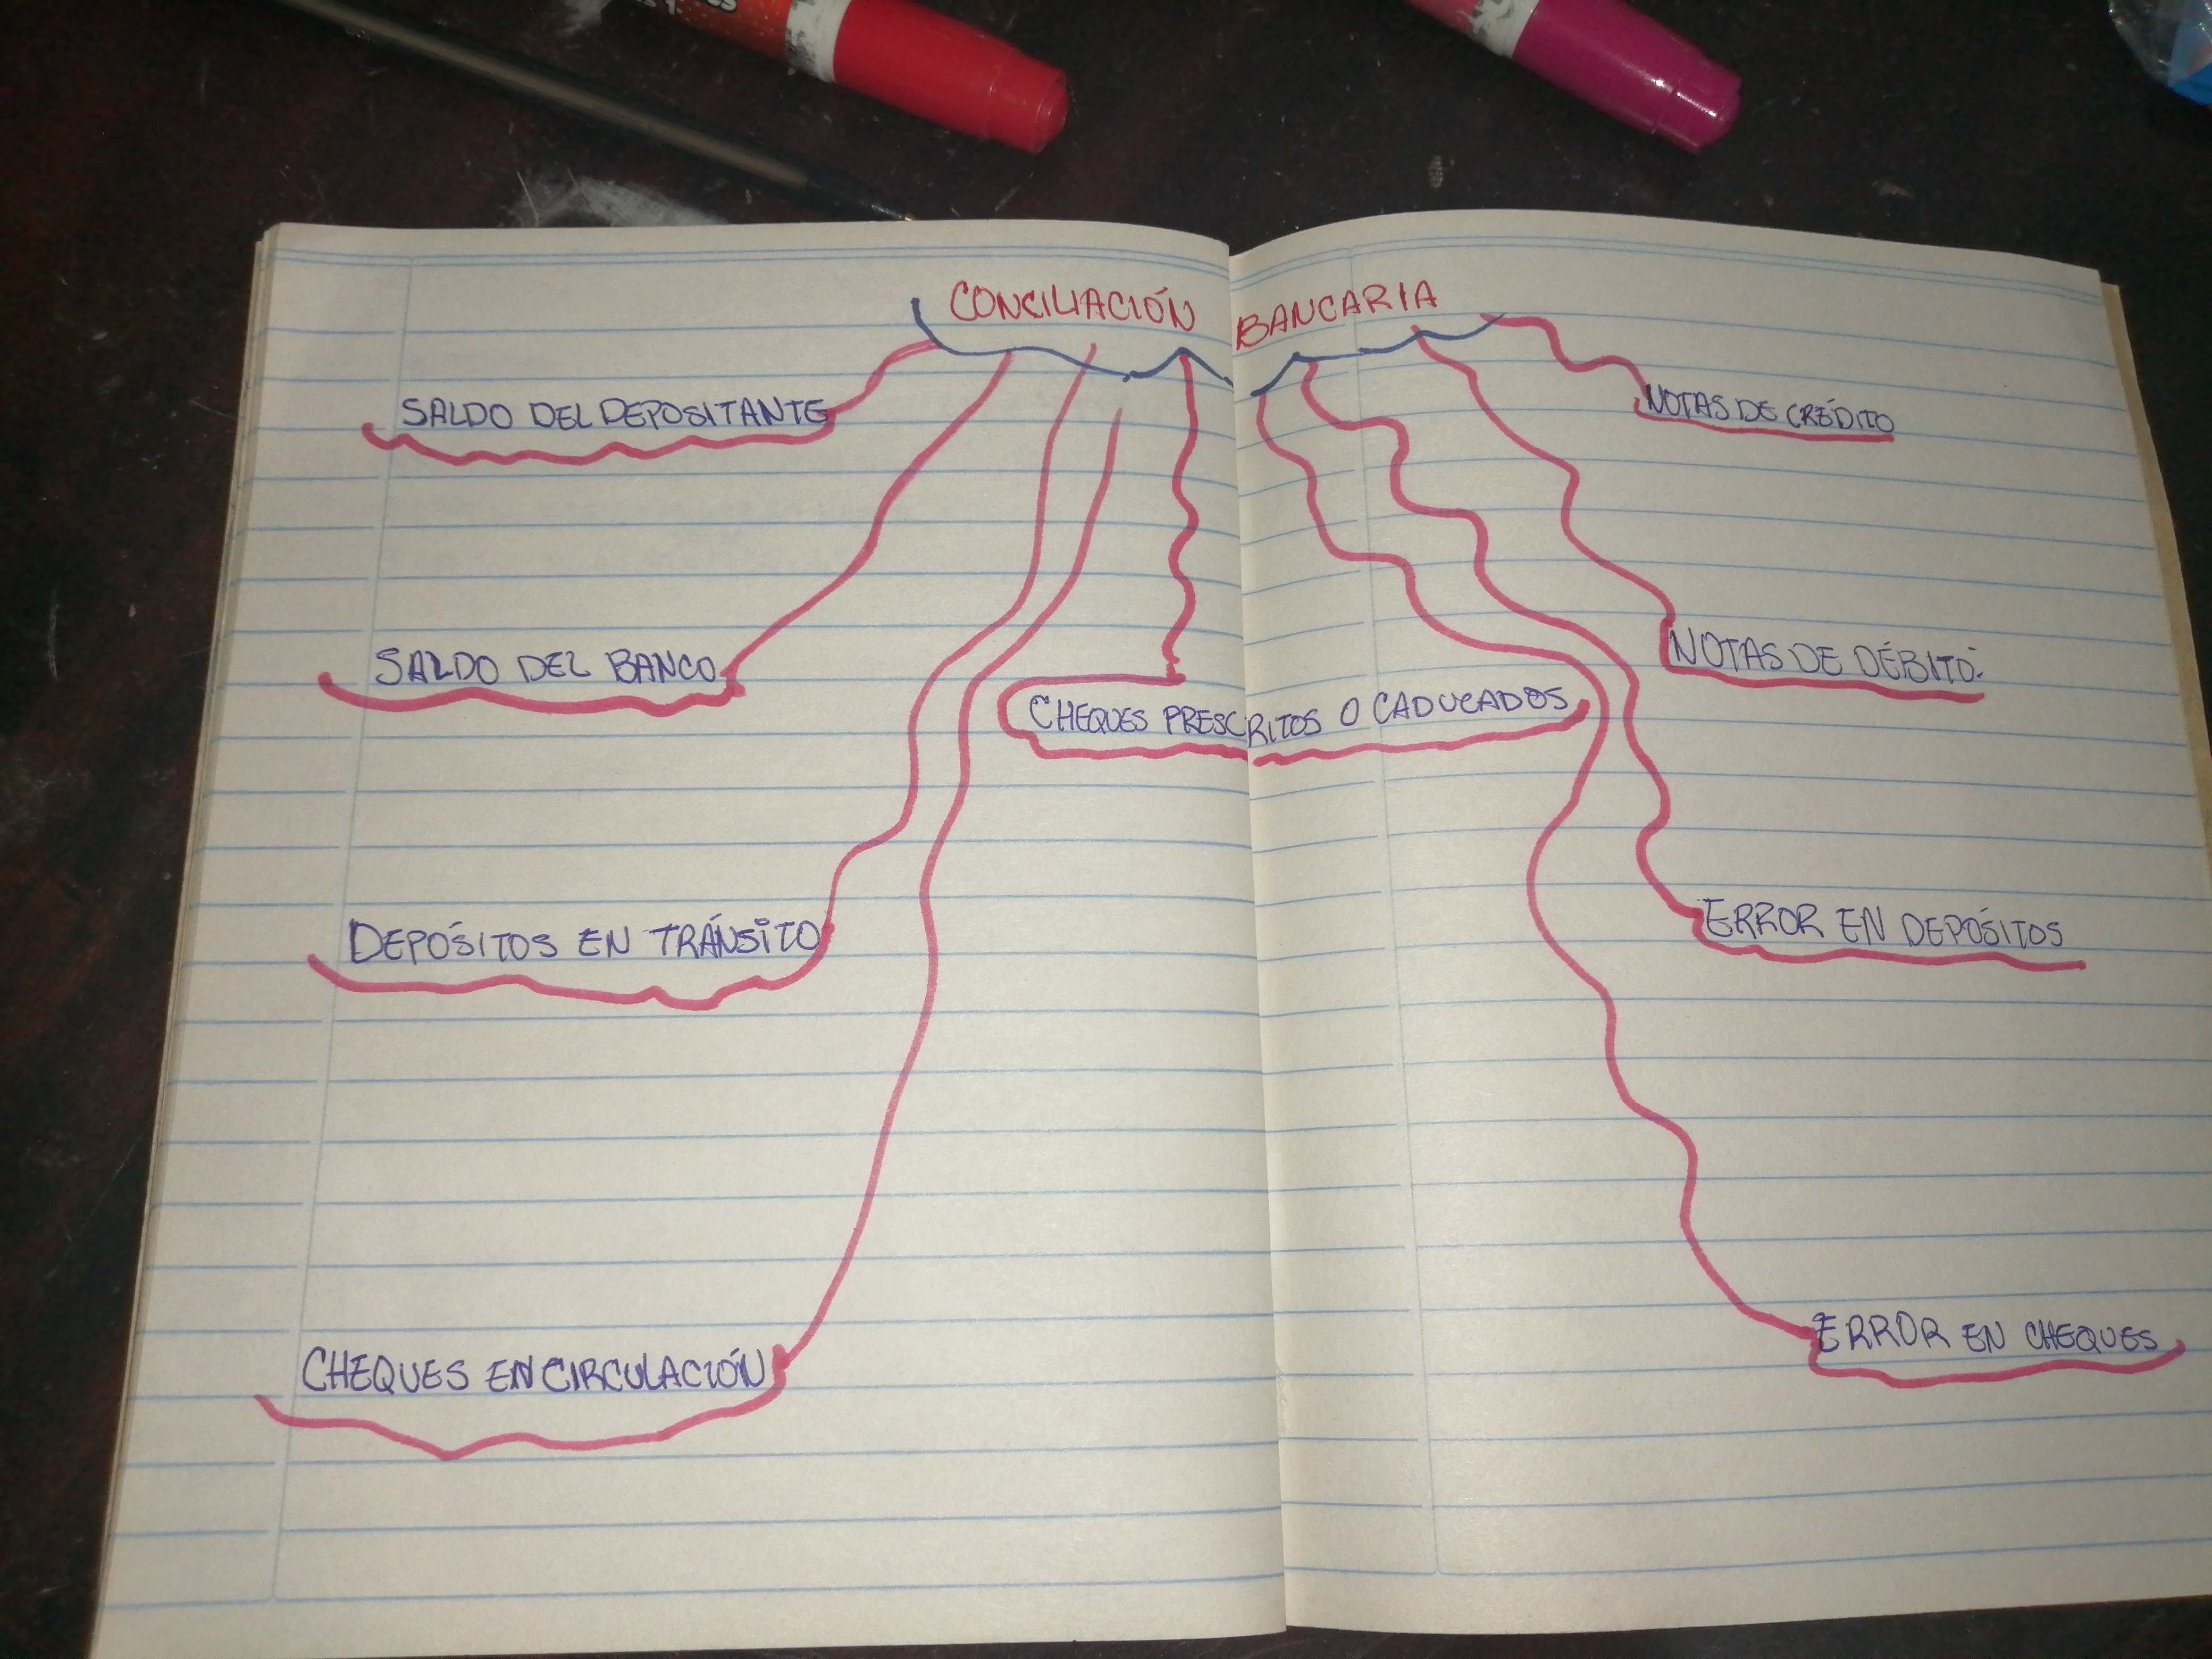 CONCILIACIÓN BANCARIA
SALDO DEL DEPOSITANTE
NOTAS DE CRÉDITO
SALDO DEL BANCO
NOTAS DE DÉBITO
CHEQUES PRESCRITOS O CADUCADOS
DEPÓSITOS EN TRÁNSITO
ERROR EN DEPÓSITOS
CHEQUES EN CIRCULACIÓN
ERROR EN CHEQUES